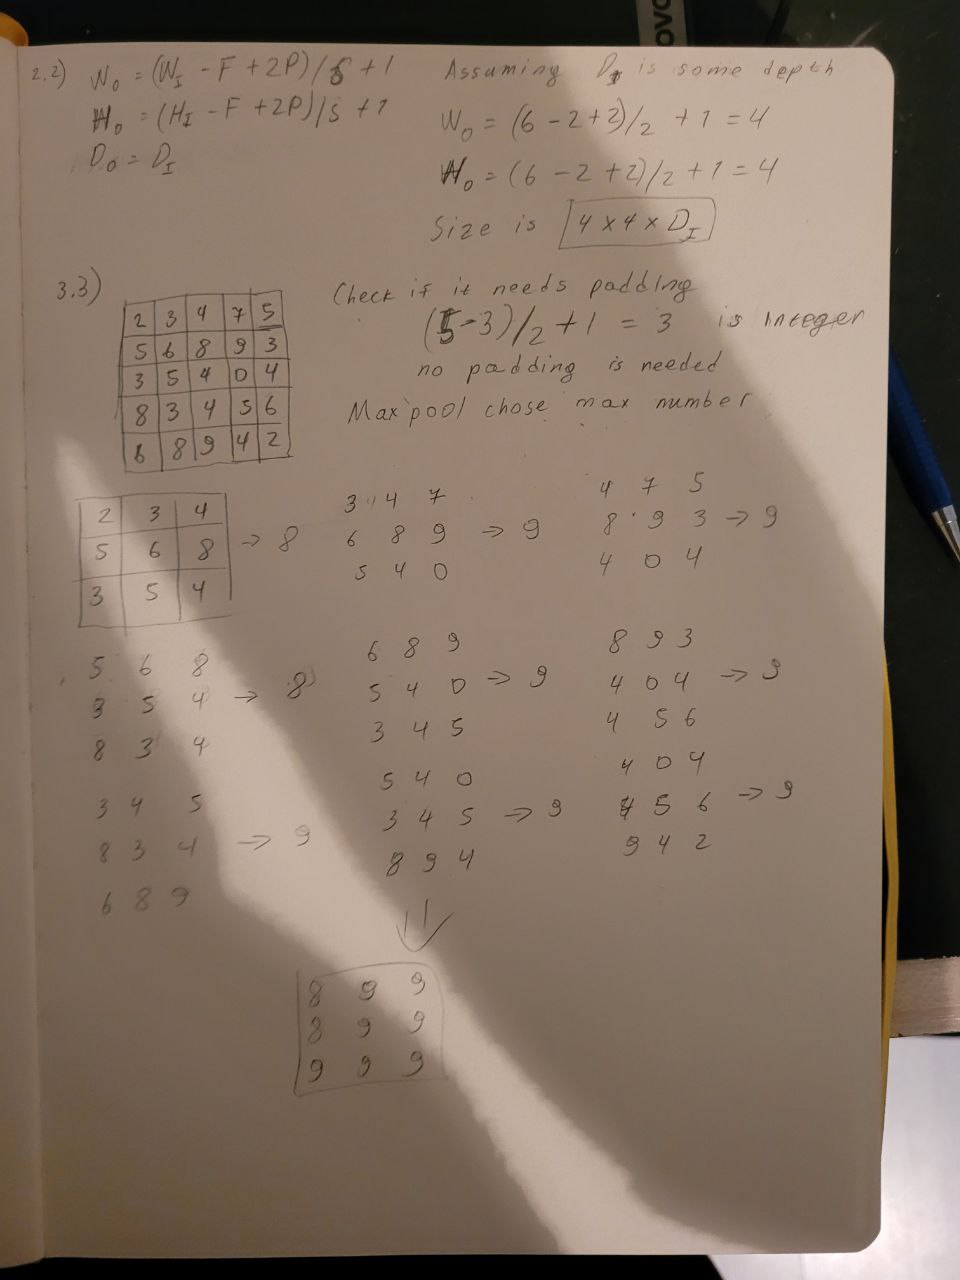 2.2) W₀ = (W_I - F + 2P)/S + 1
H₀ = (H_I - F + 2P)/S + 1
D₀ = D_I
Assuming D_I is some depth
W₀ = (6 - 2 + 2)/2 + 1 = 4
H₀ = (6 - 2 + 2)/2 + 1 = 4
Size is 4 x 4 x D_I
3.3)
2 3 4 7 5
5 6 8 9 3
3 5 4 0 4
8 3 4 5 6
6 8 9 4 2
Check if it needs padding
(5-3)/2 + 1 = 3 is integer
no padding is needed
Max pool chose max number
2 3 4
5 6 8 → 8
3 5 4
3 4 7
6 8 9 → 9
5 4 0
4 7 5
8 9 3 → 9
4 0 4
5 6 8
3 5 4 → 8
8 3 4
6 8 9
5 4 0 → 9
3 4 5
8 9 3
4 0 4 → 9
4 5 6
3 4 5
8 3 4 → 9
6 8 9
5 4 0
3 4 5 → 9
8 9 4
4 0 4
4 5 6 → 9
9 4 2
8 9 9
8 9 9
9 9 9